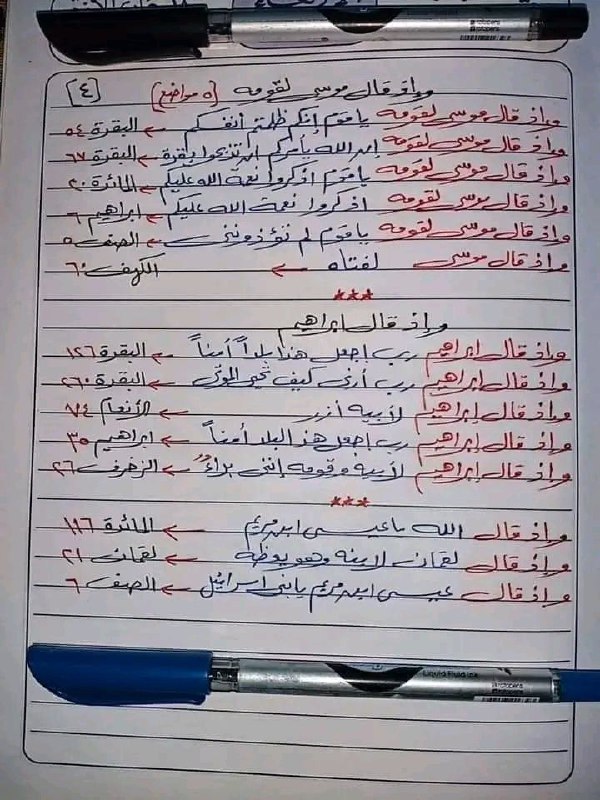 وإذ قال موسى لقومه [٥ مواضع] [٤]
وإذ قال موسى لقومه يا قوم إنكم ظلمتم أنفسكم ← البقرة ٥٤
وإذ قال موسى لقومه إن الله يأمركم أن تذبحوا بقرة ← البقرة ٦٧
وإذ قال موسى لقومه يا قوم اذكروا نعمة الله عليكم ← المائدة ٢٠
وإذ قال موسى لقومه اذكروا نعمة الله عليكم ← ابراهيم ٦
وإذ قال موسى لقومه يا قوم لم تؤذونني ← الصف ٥
وإذ قال موسى لفتاه ← الكهف ٦٠
***
وإذ قال ابراهيم
وإذ قال إبراهيم رب اجعل هذا بلداً آمناً ← البقرة ١٢٦
وإذ قال إبراهيم رب أرني كيف تحي الموتى ← البقرة ٢٦٠
وإذ قال إبراهيم لأبيه آزر ← الأنعام ٧٤
وإذ قال إبراهيم رب اجعل هذا البلد آمناً ← ابراهيم ٣٥
وإذ قال إبراهيم لأبيه وقومه إنني براءٌ ← الزخرف ٢٦
***
وإذ قال الله يا عيسى ابن مريم ← المائدة ١١٦
وإذ قال لقمان لابنه وهو يعظه ← لقمان
وإذ قال عيسى ابن مريم يا بني اسرائيل ← الصف ٦
Liquid Fluid ink